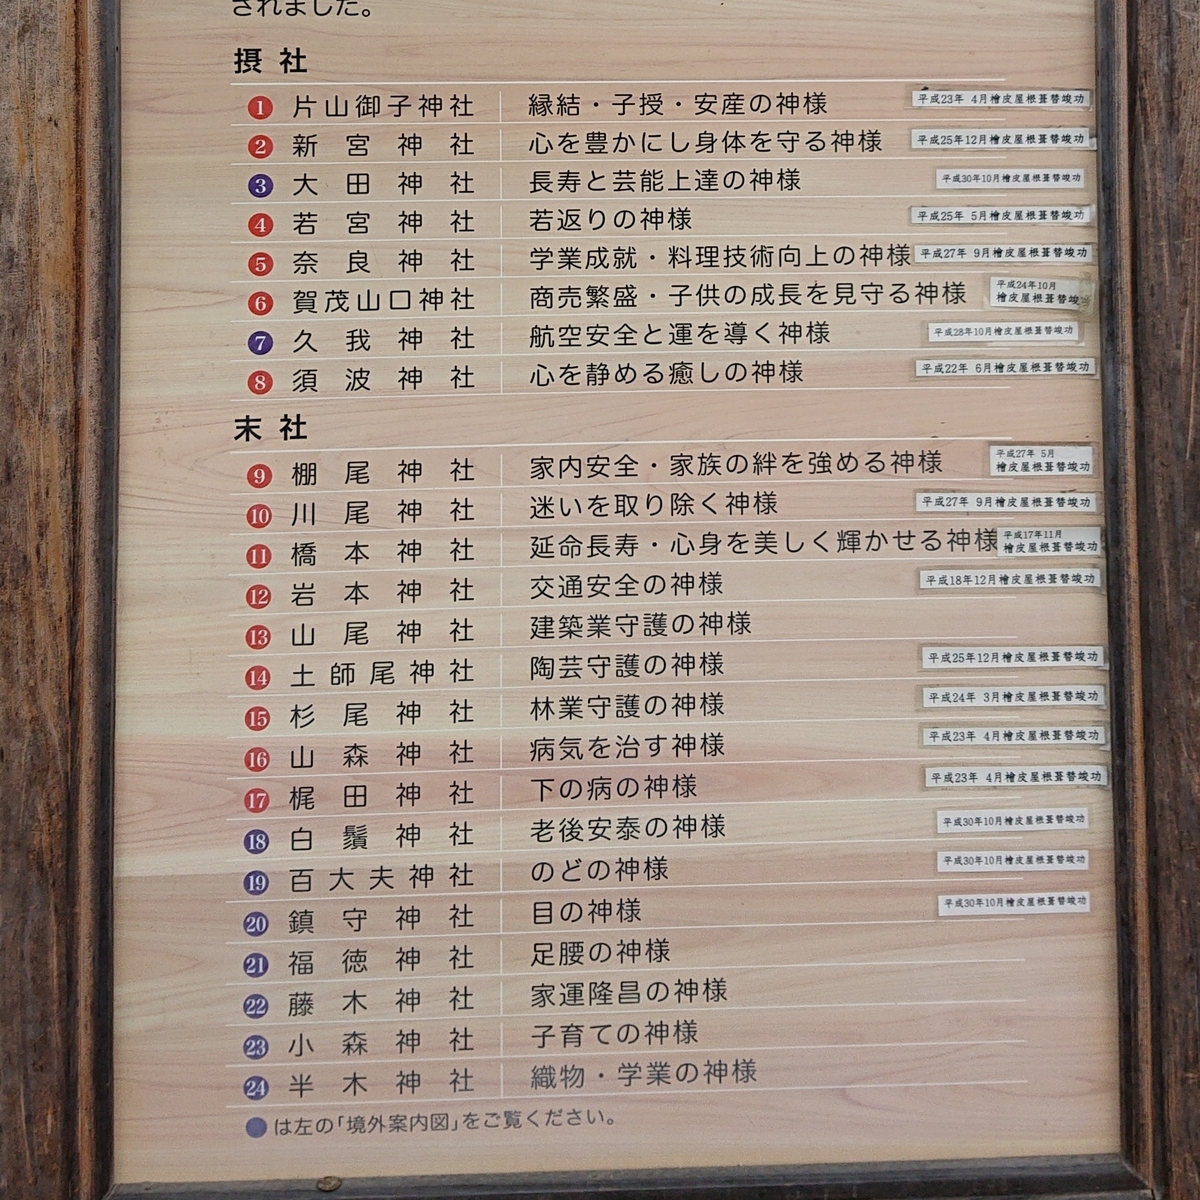 されました。
摂社
1 片山御子神社 縁結・子授・安産の神様 平成23年 4月檜皮屋根葺替竣功
2 新宮神社 心を豊かにし身体を守る神様 平成25年12月檜皮屋根葺替竣功
3 大田神社 長寿と芸能上達の神様 平成30年10月檜皮屋根葺替竣功
4 若宮神社 若返りの神様 平成25年 5月檜皮屋根葺替竣功
5 奈良神社 学業成就・料理技術向上の神様 平成27年 9月檜皮屋根葺替竣功
6 賀茂山口神社 商売繁盛・子供の成長を見守る神様 平成24年10月
檜皮屋根葺替竣
7 久我神社 航空安全と運を導く神様 平成28年10月檜皮屋根葺替竣功
8 須波神社 心を静める癒しの神様 平成22年 6月檜皮屋根葺替竣功
末社
9 棚尾神社 家内安全・家族の絆を強める神様 平成27年 5月
檜皮屋根葺替竣功
10 川尾神社 迷いを取り除く神様 平成27年 9月檜皮屋根葺替竣功
11 橋本神社 延命長寿・心身を美しく輝かせる神様 平成17年11月
檜皮屋根葺替竣功
12 岩本神社 交通安全の神様 平成18年12月檜皮屋根葺替竣功
13 山尾神社 建築業守護の神様
14 土師尾神社 陶芸守護の神様 平成25年12月檜皮屋根葺替竣功
15 杉尾神社 林業守護の神様 平成24年 3月檜皮屋根葺替竣功
16 山森神社 病気を治す神様 平成23年 4月檜皮屋根葺替竣功
17 梶田神社 下の病の神様 平成23年 4月檜皮屋根葺替竣功
18 白鬚神社 老後安泰の神様 平成30年10月檜皮屋根葺替竣功
19 百大夫神社 のどの神様 平成30年10月檜皮屋根葺替竣功
20 鎮守神社 目の神様 平成30年10月檜皮屋根葺替竣功
21 福徳神社 足腰の神様
22 藤木神社 家運隆昌の神様
23 小森神社 子育ての神様
24 半木神社 織物・学業の神様
●は左の「境外案内図」をご覧ください。